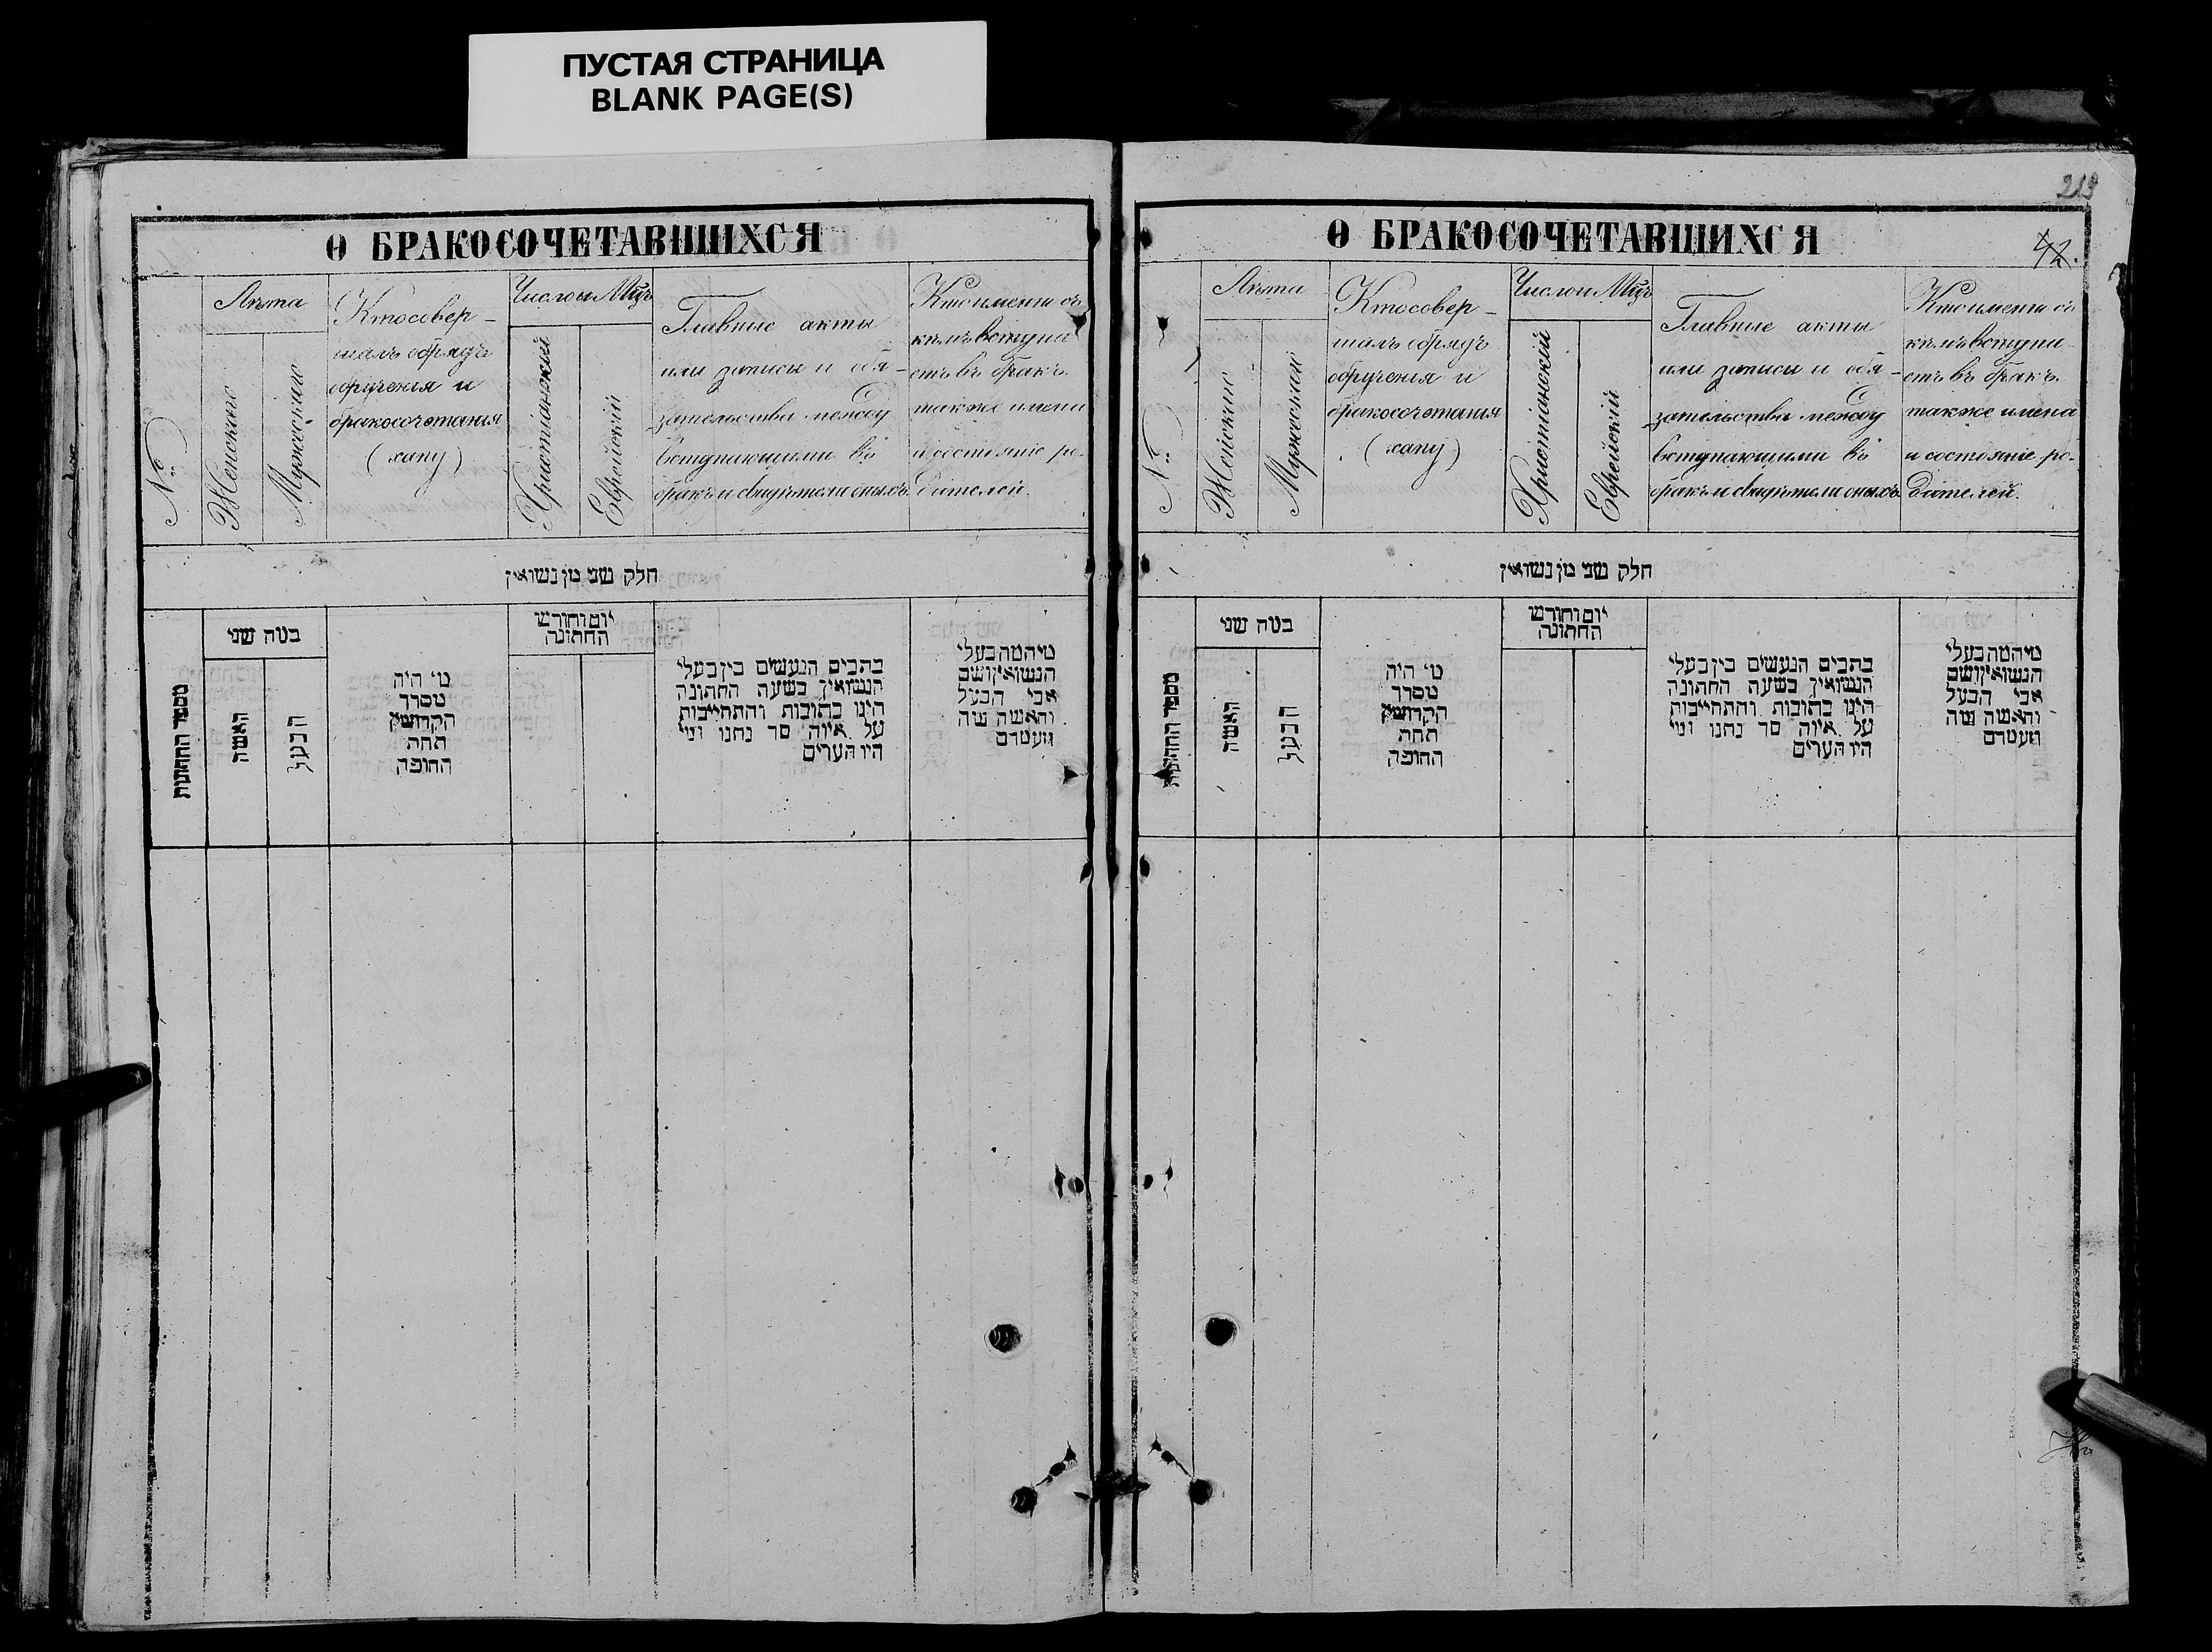 ПУСТАЯ СТРАНИЦА
BLANK PAGE(S)
Ѳ БРАКОСОЧЕТАВШИХСЯ
№
Лѣта
Женскаго
Мужескаго
Кто совер-
шалъ обрядъ
обрученія и
бракосочетанія
(хапу)
Число и Мцъ
Христіанскій
Еврейскій
Главные акты
или записи и обя-
зательства между
вступающими въ
бракъ и свидѣтели оныхъ
Кто именно съ
кѣмъ вступа-
етъ въ бракъ
также имена
и состояніе ро-
дителей.
חלק שני מן נשואין
מספר החתונות
בטה שני
האשה
הבעל
מי היה
מסדר
הקדושין
תחת
החופה
יום וחודש
החתונה
כתבים הנעשים בין בעלי
הנשואין בשעה החתונה
הינו כתובות והתחייבות
על איזה סך נתנו ומי
היו הערים
מי המה בעלי
הנשואין ושם
אבי הבעל
והאשה מה
מעמדם
213
Ѳ БРАКОСОЧЕТАВШИХСЯ
42.
№
Лѣта
Женскаго
Мужескаго
Кто совер-
шалъ обрядъ
обрученія и
бракосочетанія
(хапу)
Число и Мцъ
Христіанскій
Еврейскій
Главные акты
или записи и обя-
зательства между
вступающими въ
бракъ и свидѣтели оныхъ
Кто именно съ
кѣмъ вступа-
етъ въ бракъ
также имена
и состояніе ро-
дителей.
חלק שני מן נשואין
מספר החתונות
בטה שני
האשה
הבעל
מי היה
מסדר
הקדושין
תחת
החופה
יום וחודש
החתונה
כתבים הנעשים בין בעלי
הנשואין בשעה החתונה
הינו כתובות והתחייבות
על איזה סך נתנו ומי
היו הערים
מי המה בעלי
הנשואין ושם
אבי הבעל
והאשה מה
מעמדם